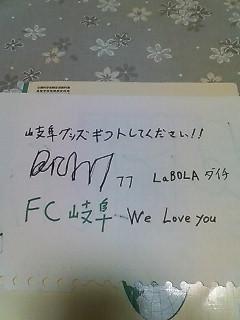 岐阜グッズギフトしてください!!
77 LaBOLA ダイチ
FC岐阜 We Love you